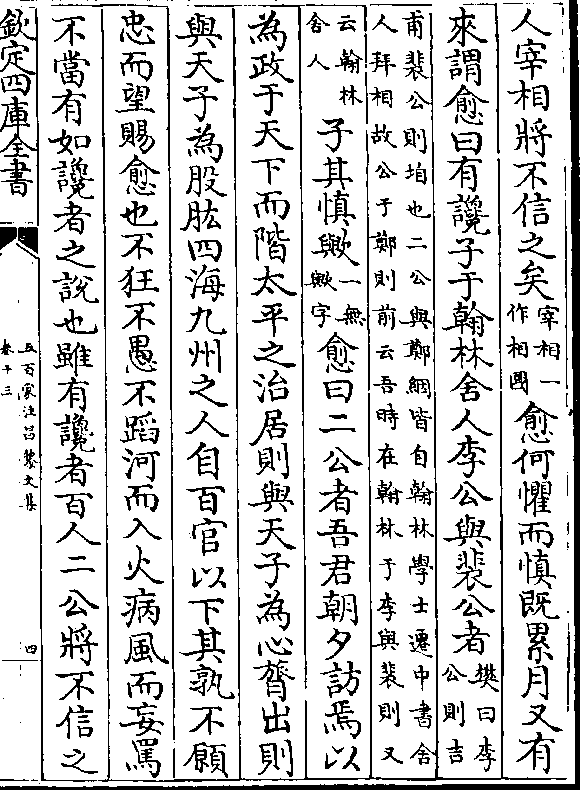 人宰相將不信之矣宰相一作相國愈何懼而慎既累月又有
來謂愈曰有讒子于翰林舍人李公與裴公者樊曰李公則吉
甫裴公則垍也二公與鄭絪皆自翰林學士遷中書舍人拜相故公于鄭則前云吾時在翰林于李與裴則又
云翰林舍人子其慎歟一無歟字愈曰二公者吾君朝夕訪焉以
為政于天下而階太平之治居則與天子為心膂出則
與天子為股肱四海九州之人自百官以下其孰不願
忠而望賜愈也不狂不愚不蹈河而入火病風而妄罵
不當有如讒者之說也雖有讒者百人二公將不信之
欽定四庫全書
五百家注昌黎文集
卷十三
四